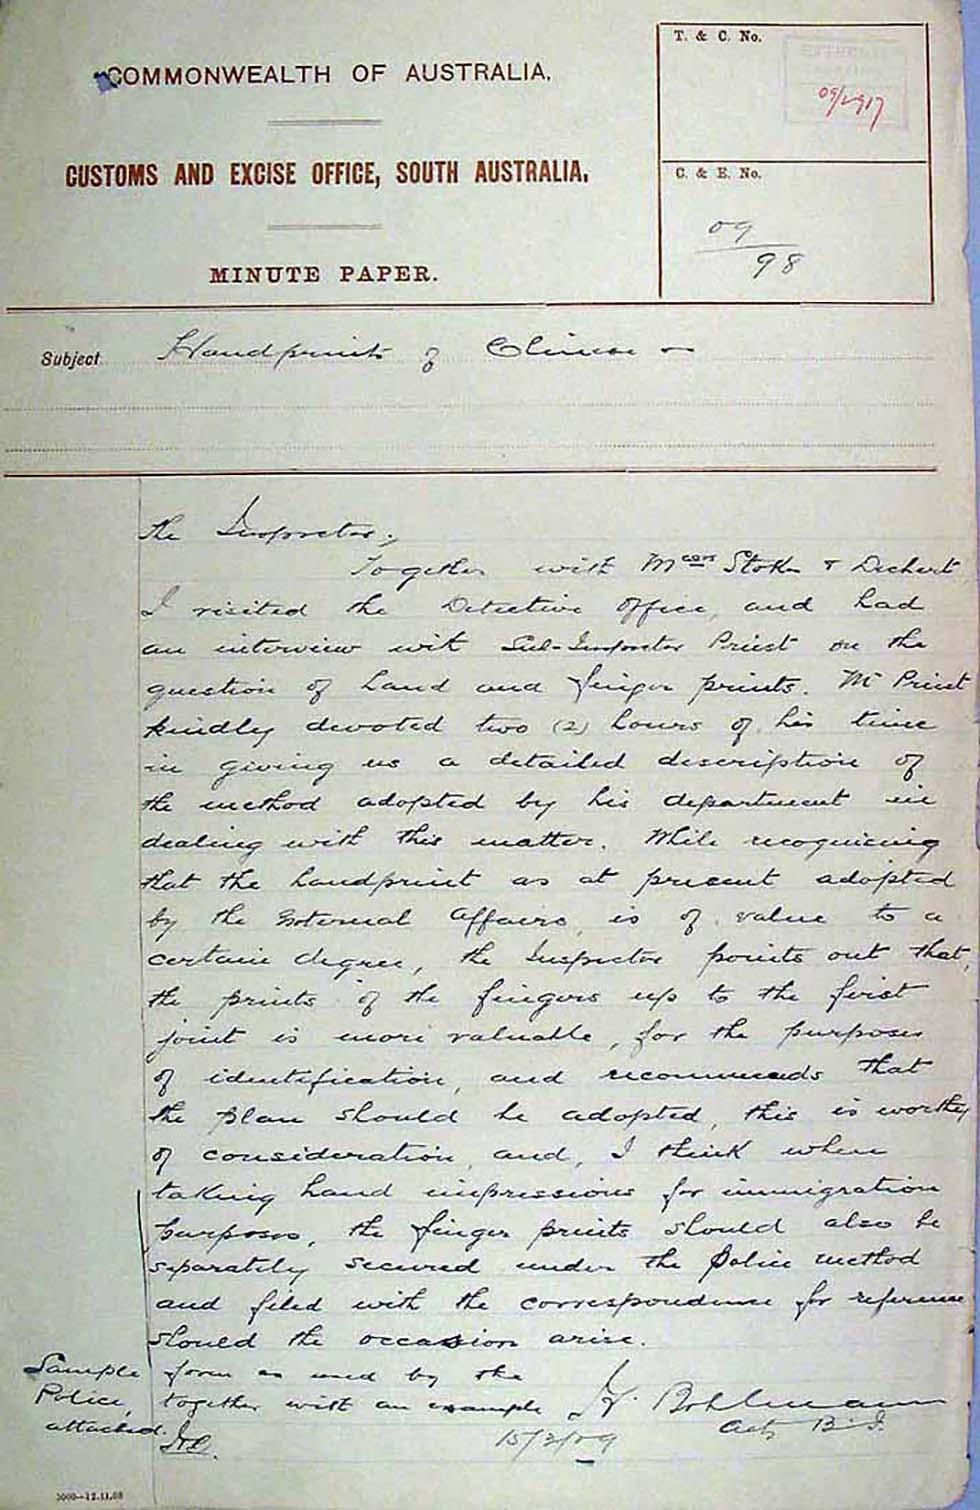 COMMONWEALTH OF AUSTRALIA.
CUSTOMS AND EXCISE OFFICE, SOUTH AUSTRALIA.
MINUTE PAPER.
T. & C. No.
09/2917
C. & E. No.
09
98
Subject Handprints of Chinese
The Inspector,
Together with Messrs Stoke & Dechert
I visited the Detective Office, and had
an interview with Sub-Inspector Priest on the
question of hand and finger prints. Mr Priest
kindly devoted two (2) hours of his time
in giving us a detailed description of
the method adopted by his department in
dealing with this matter. While recognising
that the handprint as at present adopted
by the External Affairs, is of value to a
certain degree, the Inspector points out that,
the prints of the fingers up to the first
joint is more valuable, for the purposes
of identification, and recommends that
the plan should be adopted, this is worthy
of consideration, and, I think when
taking hand impressions for immigration
purposes, the finger prints should also be
separately secured under the Police method
and filed with the correspondence for reference
should the occasion arise.
Sample form as used by the
Police, together with an example
attached.
H. Bohlmann
15/3/09
3000—12.11.08